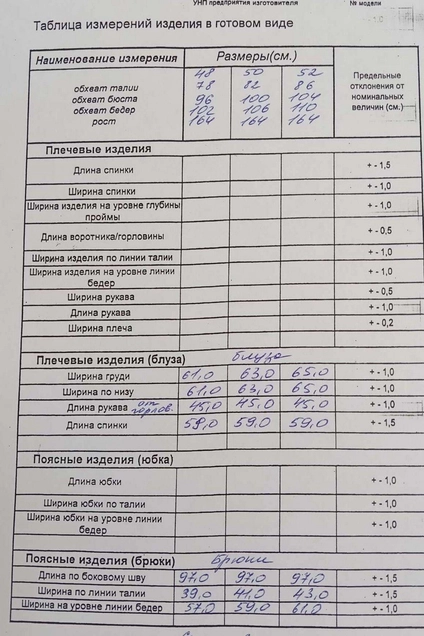 УНП предприятия изготовителя № модели
Таблица измерений изделия в готовом виде
Наименование измерения Размеры(см.) Предельные отклонения от номинальных величин (см.)
48 50 52
обхват талии 78 82 86
обхват бюста 96 100 104
обхват бедер 102 106 110
рост 164 164 164
Плечевые изделия
Длина спинки + - 1,5
Ширина спинки + - 1,0
Ширина изделия на уровне глубины проймы + - 1,0
Длина воротника/горловины + - 0,5
Ширина изделия по линии талии + - 1,0
Ширина изделия на уровне линии бедер + - 1,0
Ширина рукава + - 0,5
Длина рукава + - 1,0
Ширина плеча + - 0,2
Плечевые изделия (блуза) блуза
Ширина груди 61,0 63,0 65,0 + - 1,0
Ширина по низу 61,0 63,0 65,0 + - 1,0
Длина рукава от горлов. 45,0 45,0 45,0 + - 1,0
Длина спинки 59,0 59,0 59,0 + - 1,5
Поясные изделия (юбка)
Длина юбки + - 1,0
Ширина юбки по талии + - 1,0
Ширина юбки на уровне линии бедер + - 1,0
Поясные изделия (брюки) Брюки
Длина по боковому шву 97,0 97,0 97,0 + - 1,5
Ширина по линии талии 39,0 41,0 43,0 + - 1,5
Ширина на уровне линии бедер 57,0 59,0 61,0 + - 1,0